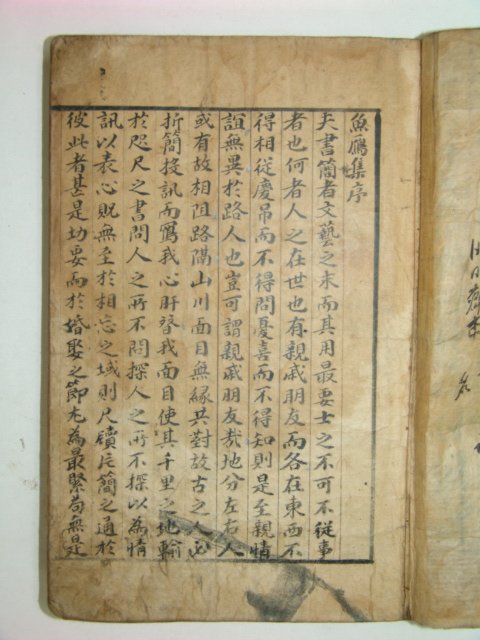 魚鴈集序
夫書簡者文藝之末而其用最要士之不可不從事
者也何者人之在世也有親戚朋友而各在東西不
得相從慶吊而不得問憂喜而不得知則是至親情
誼無異於路人也豈可謂親戚朋友哉地分左右人
或有故相阻路隔山川面目無緣共對故古之人必
折簡投訊而寫我心肝替我面目使其千里之地輸
於咫尺之書問人之所不問探人之所不探以為情
訊以表心貺無至於相忘之域則尺牘片簡之通於
彼此者甚是切要而於婚娶之節尤為最緊苟無是